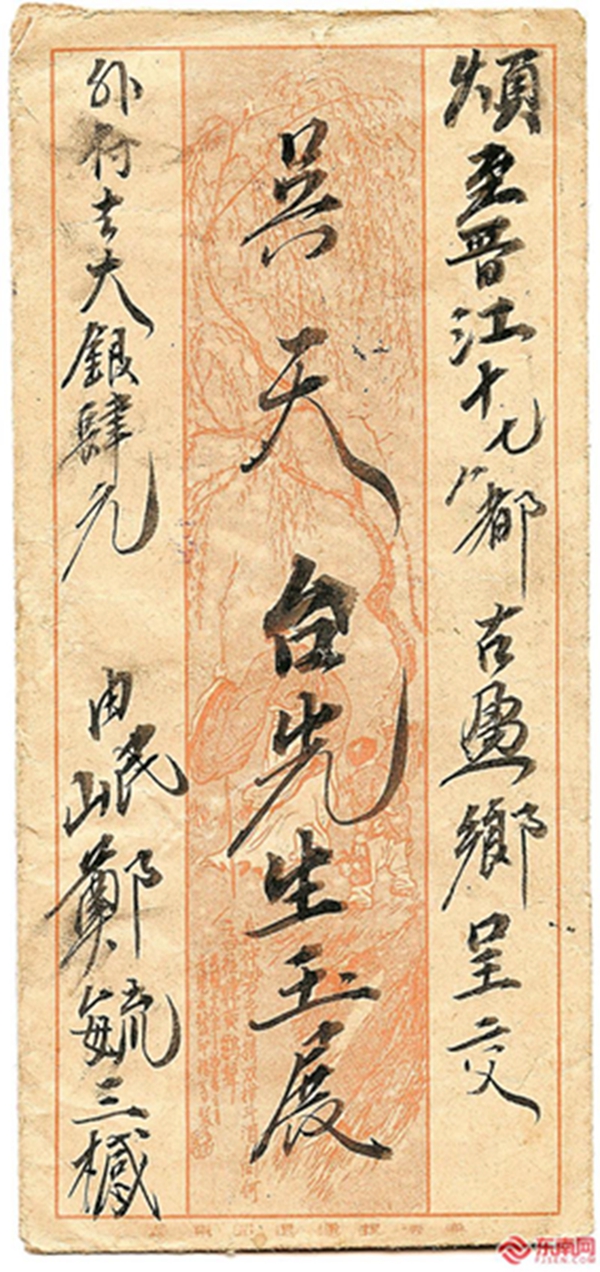 煩至晋江十七八都古盈鄉呈交
吳天台先生玉展
外付去大銀肆元 由岷鄭毓三椷
东南网
FJSEN.COM